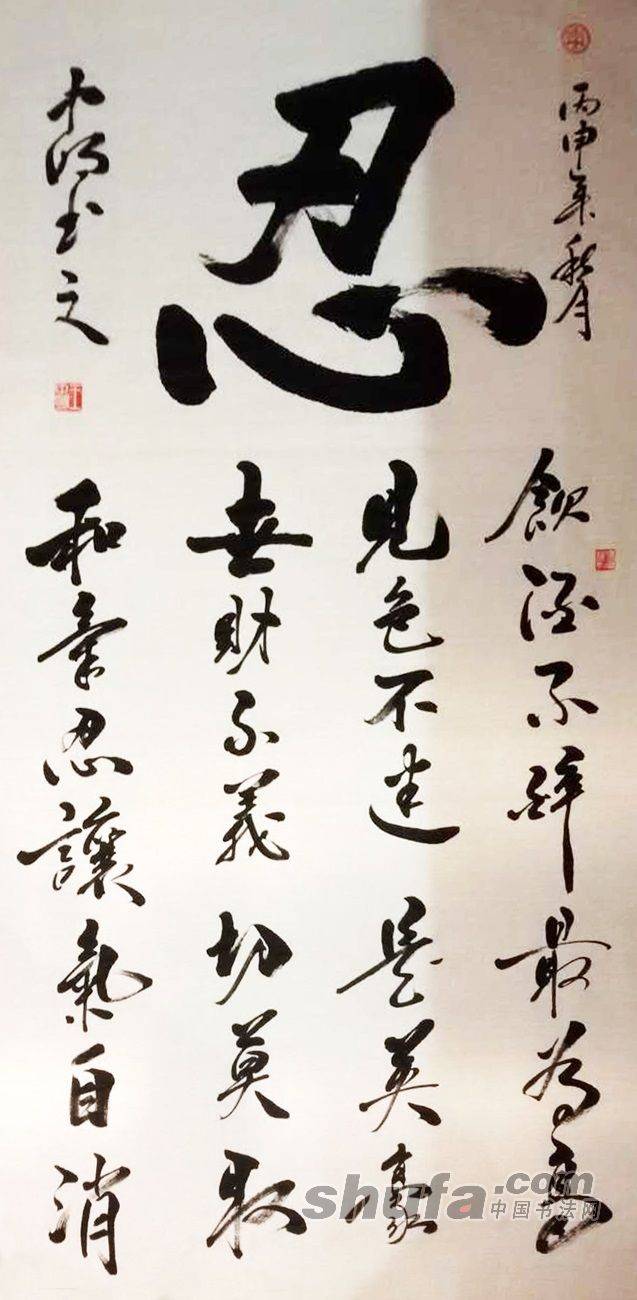 丙申年秋月
忍
书文
飲酒不醉最為高
見色不迷是英豪
世財不義切莫取
和氣忍讓氣自消
shufa.com
中国书法网